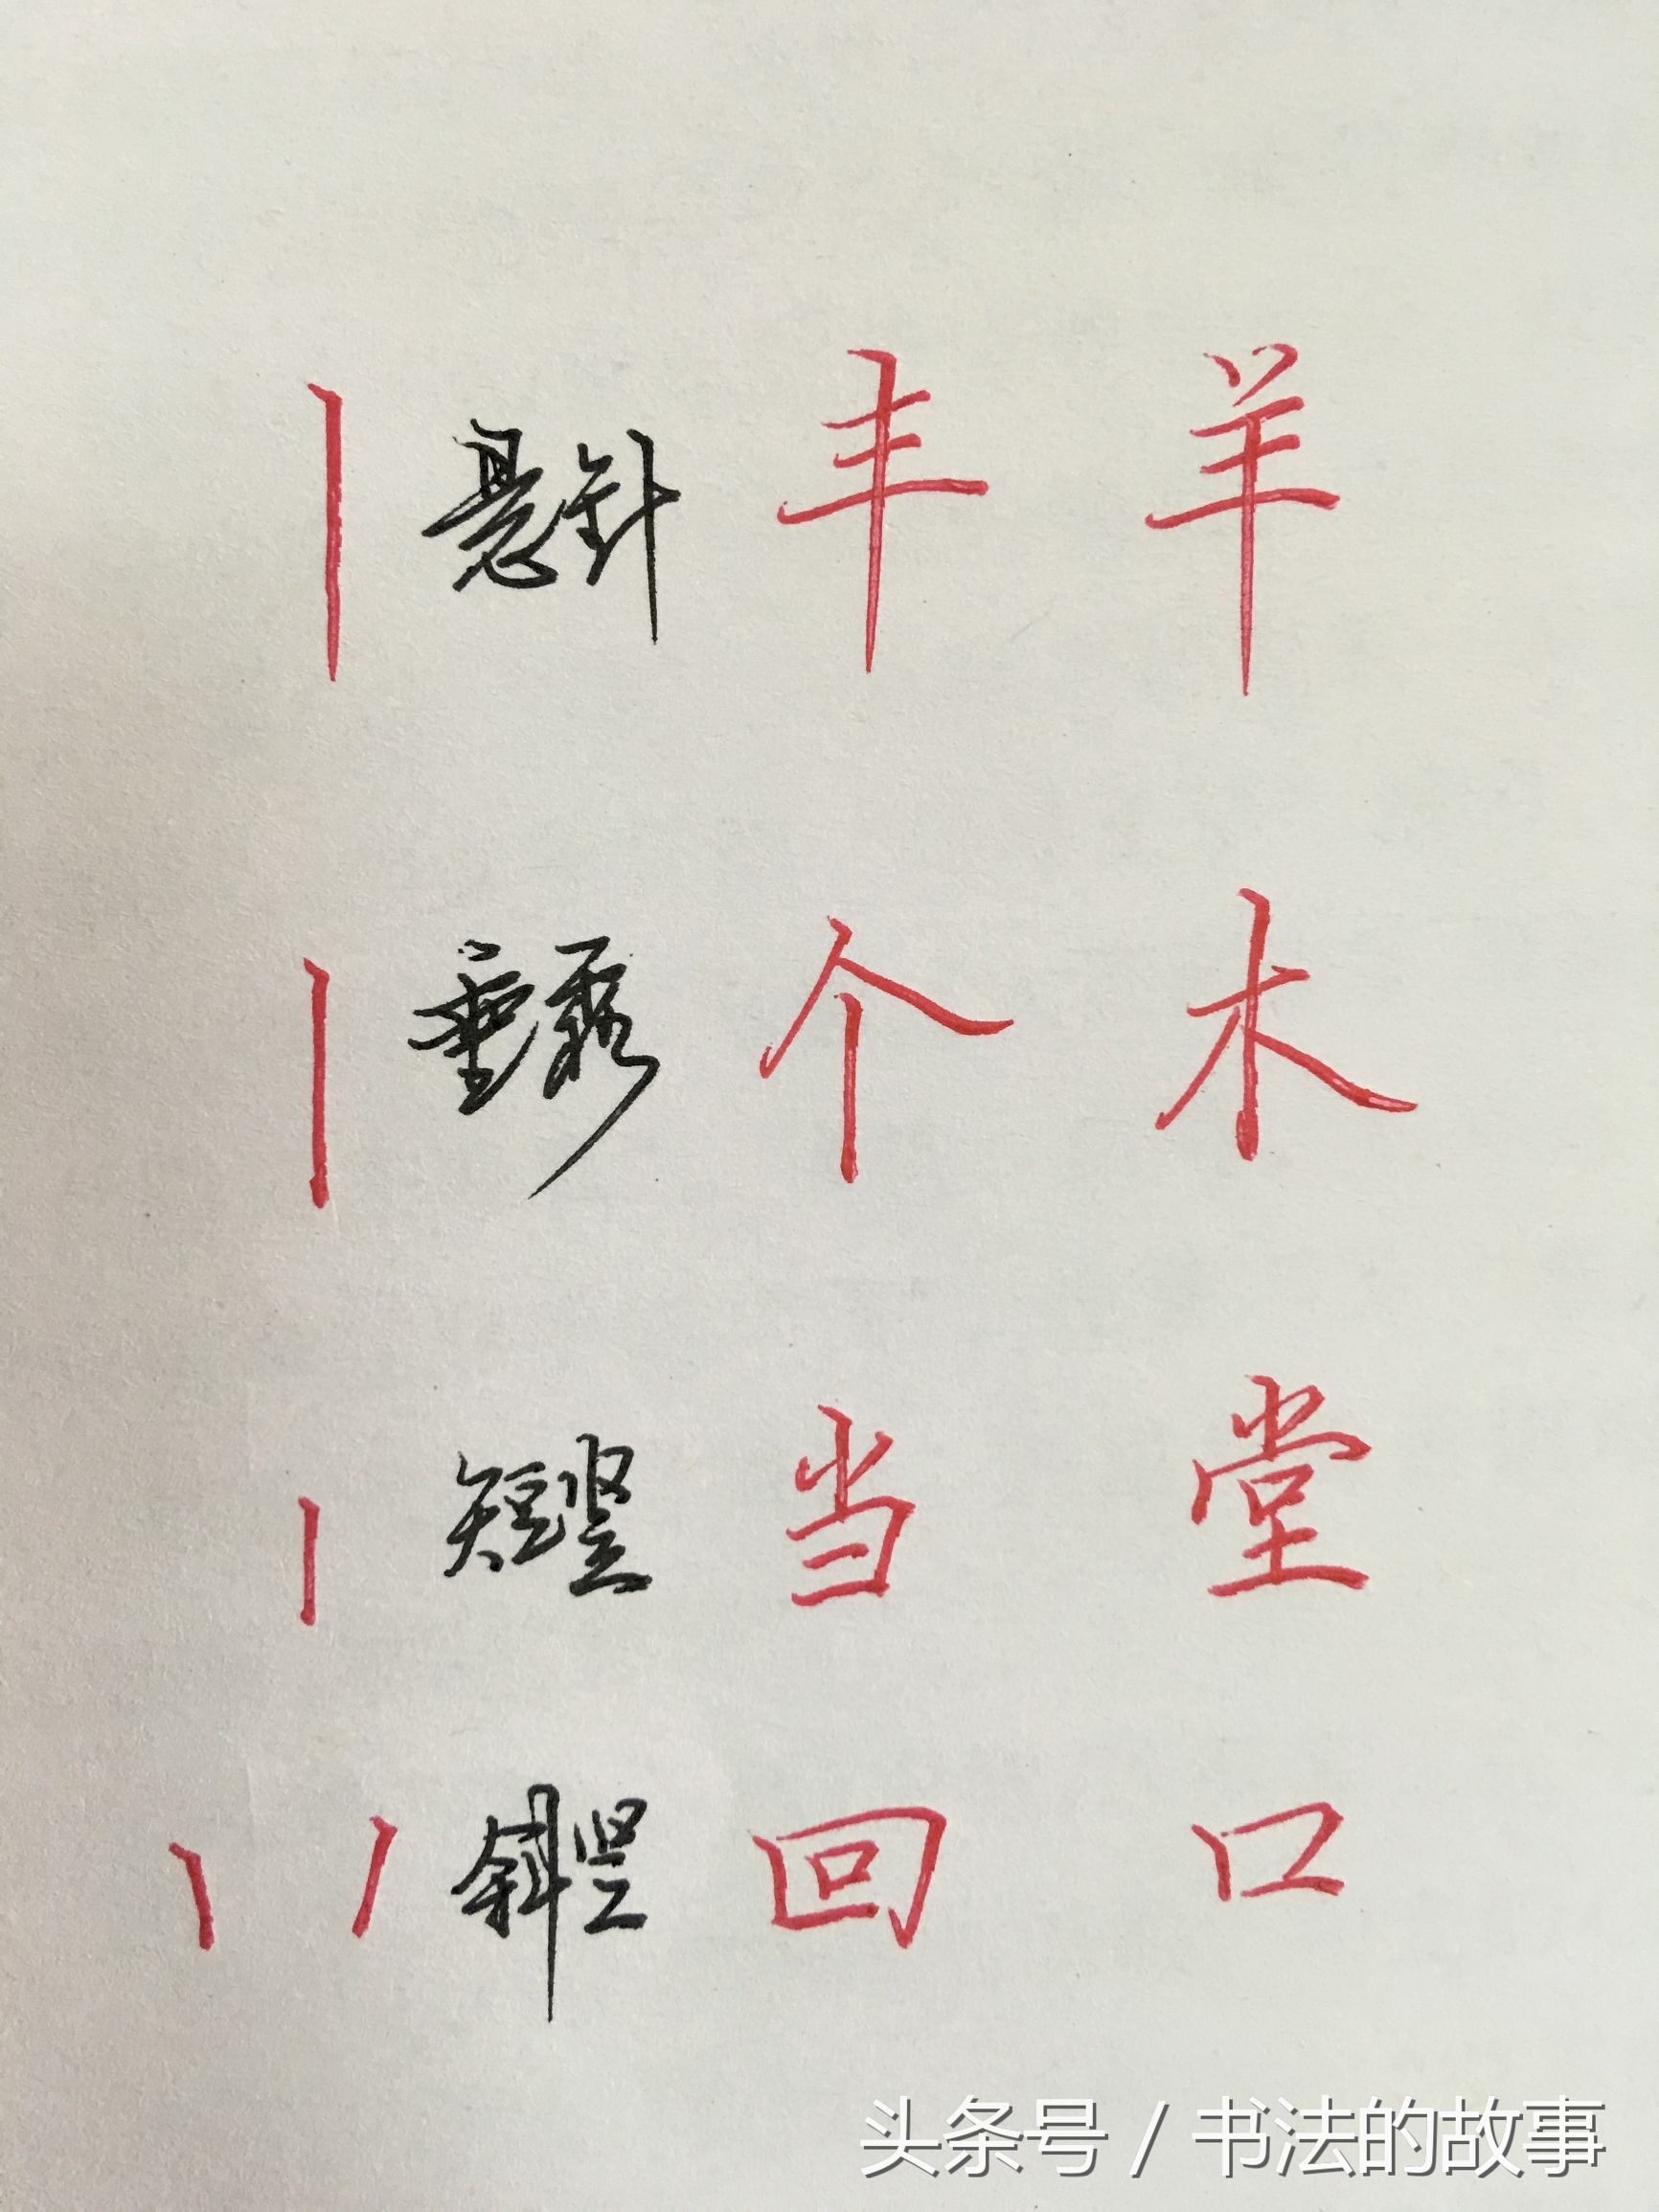 丨 悬针 丰 羊
丨 垂露 个 木
丨 短竖 当 堂
丨 丨 斜竖 回 口
头条号 / 书法的故事